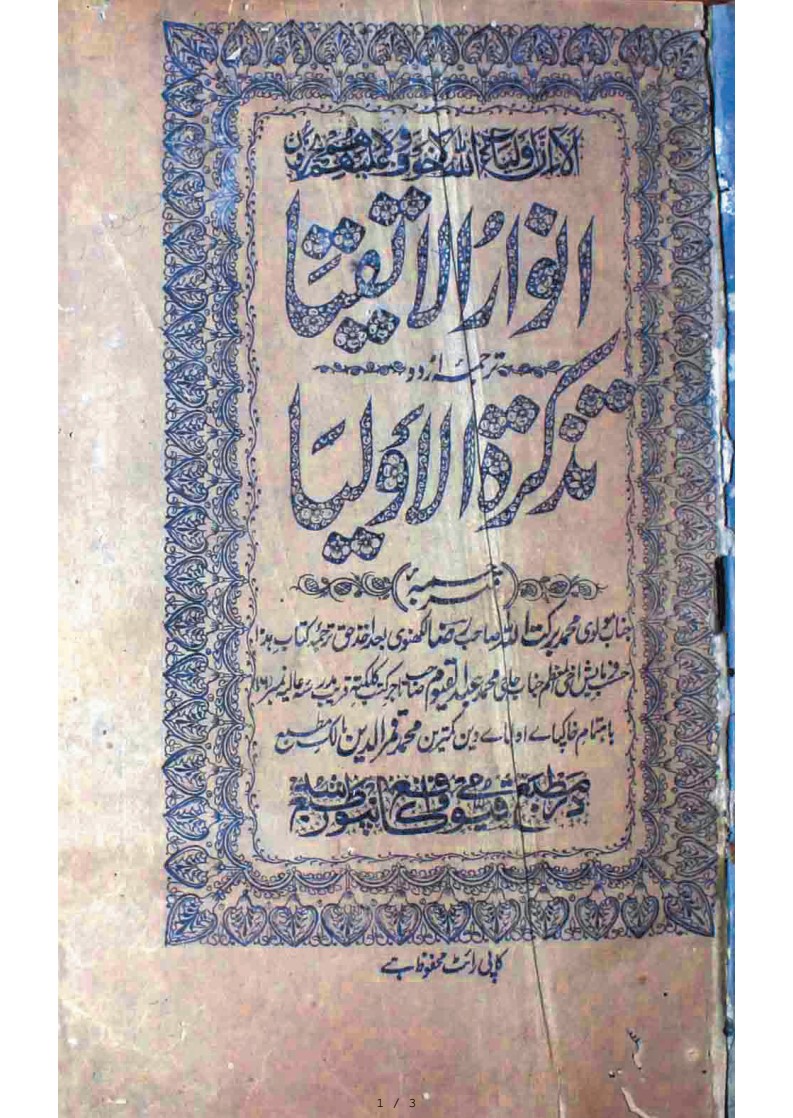 الا ان اولیاء اللہ لا خوف علیهم ولا هم یحزنون
انوارُ الاتقیَا
ترجمۂ اُردو
تذکرۃ الاولیَا
مترجمہ
جناب مولوی محمد برکت اللہ صاحب رضا لکھنوی بعد اخذ حق ترجمۂ کتاب ہذا
حسب فرمایش اخی معظم جناب حاجی محمد عبد القیوم صاحب تاجر کتب کلکتہ قریب مدرسہ عالیہ نمبر ۱۶
باہتمام خاکپاے اولیاے دین کمترین محمد قمر الدین مالک مطبع
در مطبع قیومی واقع کانپور طبع شد
کاپی رائٹ محفوظ ہے
1 / 3